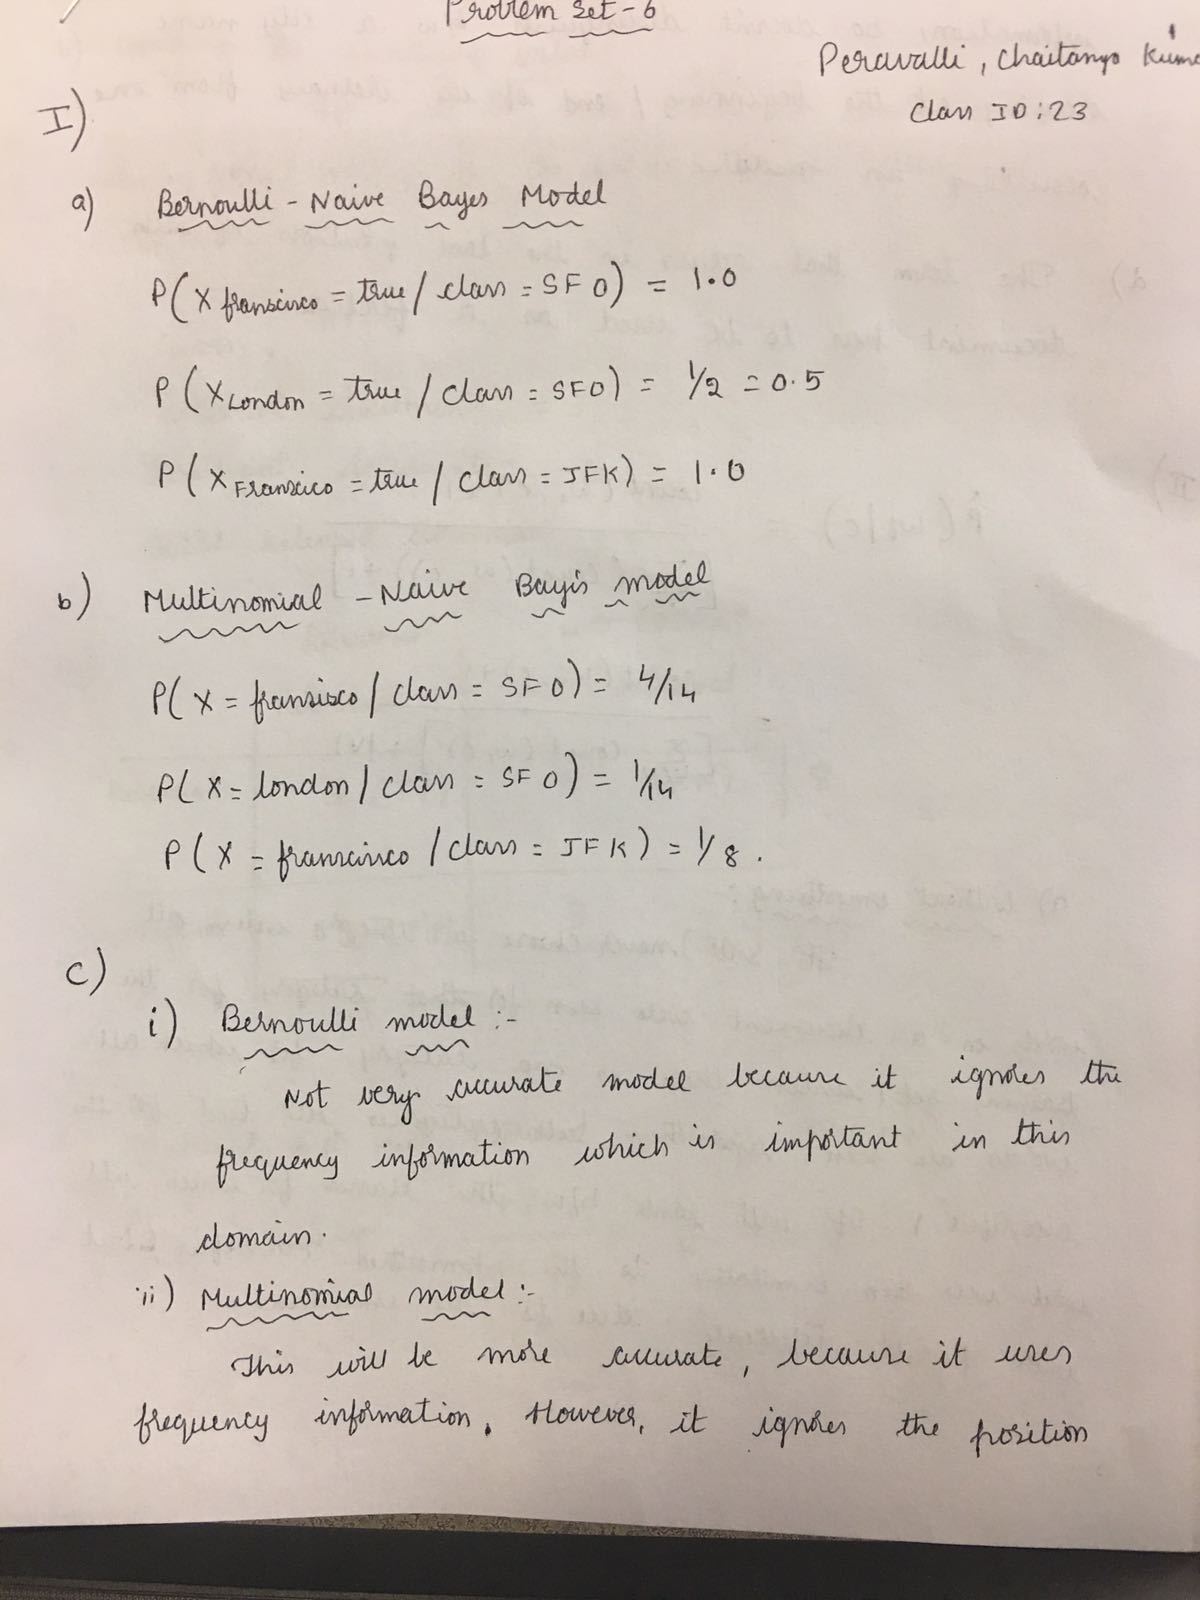 Problem Set-6
Peravalli, Chaitanya
Class ID: 23
I)
a) Bernoulli - Naive Bayes Model
P(X franscisco = true / class = SFO) = 1.0
P(X London = true / class = SFO) = 1/2 = 0.5
P(X Franscico = true / class = JFK) = 1.0
b) Multinomial - Naive Bayis model
P(X = fransisco / class = SFO) = 4/14
P(X = london / class = SFO) = 1/14
P(X = franscisco / class = JFK) = 1/8.
C)
i) Bernoulli model :-
Not very accurate model because it ignores the
frequency information which is important in this
domain.
ii) Multinomial model :-
This will be more accurate, because it uses
frequency information. However, it ignores the position